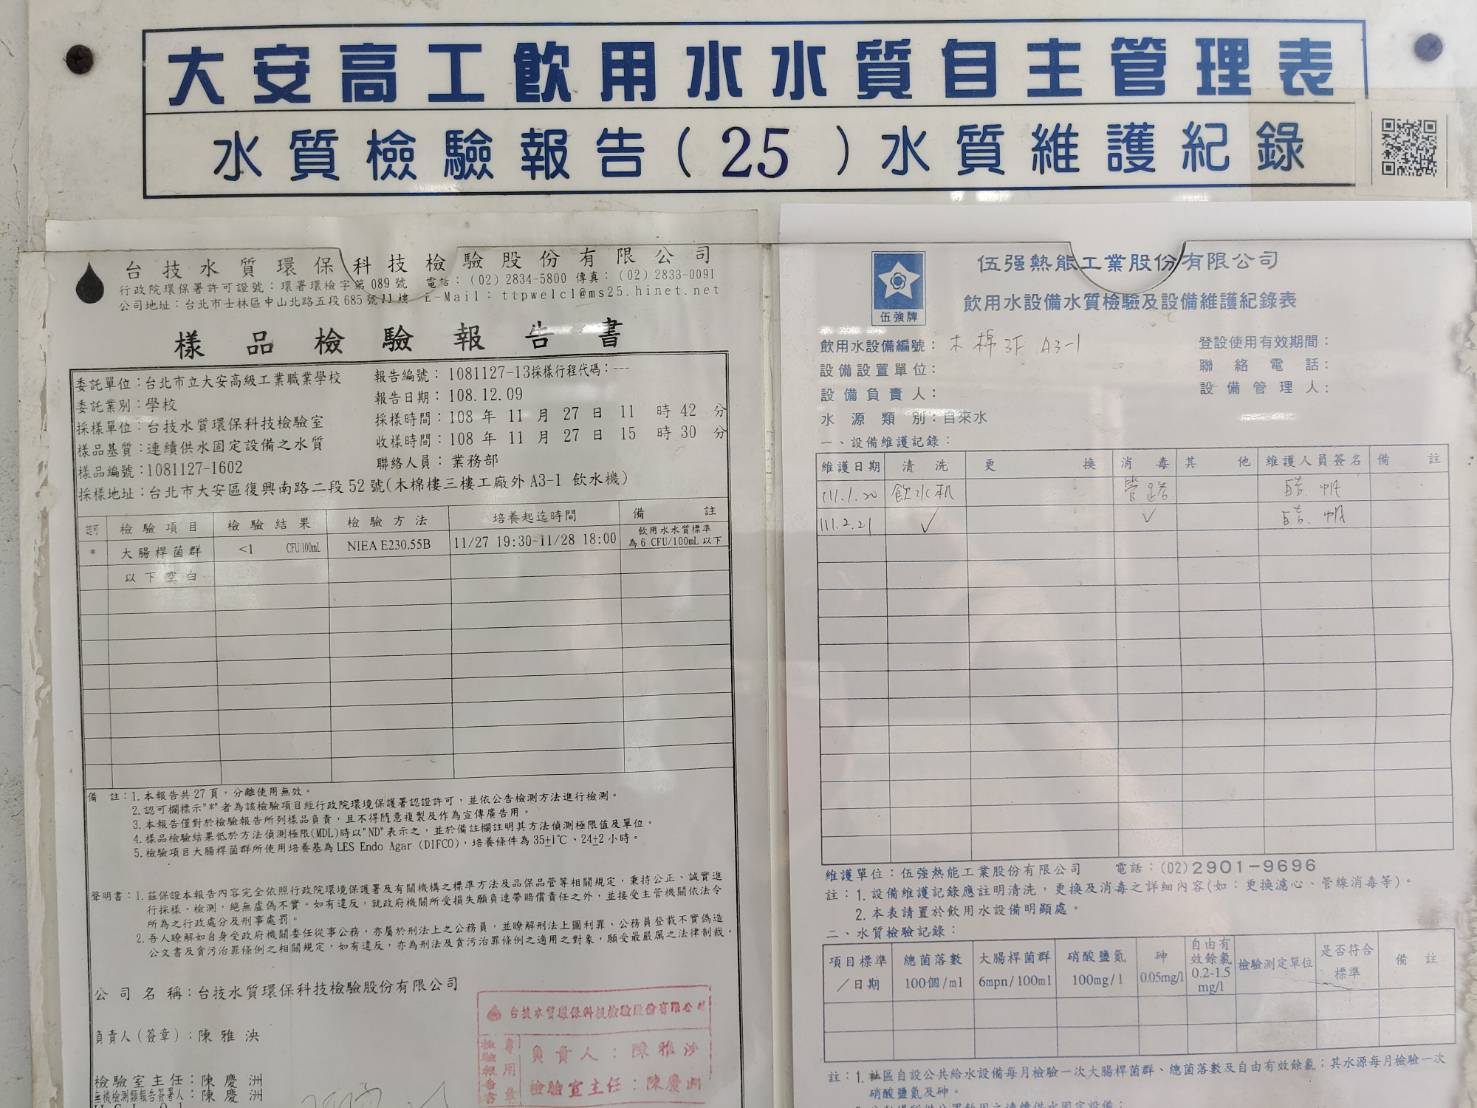 大安高工飲用水水質自主管理表
水質檢驗報告(25)水質維護紀錄
台技水質環保科技檢驗股份有限公司
行政院環保署許可證號：環署環檢字第089號 電話：(02)2834-5800 傳真：(02)2833-0091
公司地址：台北市士林區中山北路五段685號11樓 E-Mail：ttpwelc1@ms25.hinet.net
樣品檢驗報告書
委託單位：台北市立大安高級工業職業學校 報告編號：1081127-13採樣行程代碼：---
委託業別：學校 報告日期：108.12.09
採樣單位：台技水質環保科技檢驗室 採樣時間：108年11月27日11時42分
樣品基質：連續供水固定設備之水質 收樣時間：108年11月27日15時30分
樣品編號：1081127-1602 聯絡人員：業務部
採樣地址：台北市大安區復興南路二段52號(木棉樓三樓工廠外A3-1 飲水機)
檢驗項目 檢驗結果 檢驗方法 培養起迄時間 備註
* 大腸桿菌群 <1 CFU/100mL NIEA E230.55B 11/27 19:30-11/28 18:00 飲用水水質標準
為6 CFU/100mL以下
以下空白
備註：1.本報告共27頁，分離使用無效。
2.認可欄標示"*"者為該檢驗項目經行政院環境保護署認證許可，並依公告檢測方法進行檢測。
3.本報告僅對於檢驗報告所列樣品負責，且不得隨意複製及作為宣傳廣告用。
4.樣品檢驗結果低於方法偵測極限(MDL)時以"ND"表示之，並於備註欄註明其方法偵測極限值及單位。
5.檢驗項目大腸桿菌群所使用培養基為LES Endo Agar (DIFCO)，培養條件為35±1℃、24±2小時。
聲明書：1.茲保證本報告內容完全依照行政院環境保護署及有關機構之標準方法及品保品管等相關規定，秉持公正、誠實進
行採樣、檢測，絕無虛偽不實。如有違反，就政府機關所受損失願負連帶賠償責任之外，並接受主管機關依法令
所為之行政處分及刑事處罰。
2.吾人瞭解如自身受政府機關委任從事公務，亦屬於刑法上之公務員，並瞭解刑法上圖利罪、公務員登載不實偽造
公文書及貪污治罪條例之相關規定，如有違反，亦為刑法及貪污治罪條例之適用之對象，願受最嚴厲之法律制裁。
公司名稱：台技水質環保科技檢驗股份有限公司
負責人(簽章)：陳雅泱
檢驗室主任：陳慶洲
無機檢測類報告簽署人：陳慶洲
台技水質環保科技檢驗股份有限公司
檢驗報告書專用章
負責人：陳雅泱
檢驗室主任：陳慶洲
伍強牌
伍强熱能工業股份有限公司
飲用水設備水質檢驗及設備維護紀錄表
飲用水設備編號：木棉3F A3-1 登設使用有效期間：
設備設置單位： 聯絡電話：
設備負責人： 設備管理人：
水源類別：自來水
一、設備維護記錄：
維護日期 清洗 更換 消毒 其他 維護人員簽名 備註
111.1.20 飲水机 管路
111.2.21 ✓ ✓
維護單位：伍強熱能工業股份有限公司 電話：(02)2901-9696
註：1.設備維護記錄應註明清洗，更換及消毒之詳細內容(如：更換濾心、管線消毒等)。
2.本表請置於飲用水設備明顯處。
二、水質檢驗記錄：
項目標準／日期 總菌落數100個/ml 大腸桿菌群6mpn/100ml 硝酸鹽氮100mg/l 砷0.05mg/l 自由有效餘氯0.2-1.5mg/l 檢驗測定單位 是否符合標準 備註
註：1.社區自設公共給水設備每月檢驗一次大腸桿菌群、總菌落數及自由有效餘氯；其水源每月檢驗一次
硝酸鹽氮及砷。